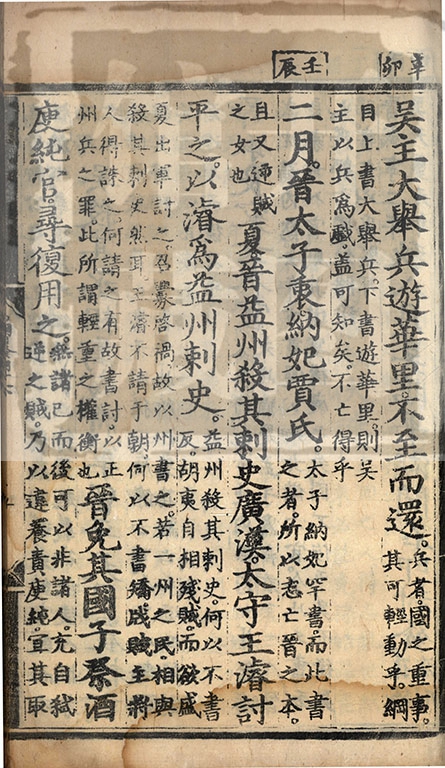 辛卯
壬辰
吳主大舉兵遊華里。不至而還。兵者。國之重事。
其可輕動乎。綱
目上書大舉兵。下書遊華里。則吳
主以兵爲戲。盖可知矣。不亡得乎
二月。晉太子衷納妃賈氏。太子納妃罕書。而此書
之者。所以志亡晉之本。
且又逆賊
之女也
夏晉益州殺其刺史廣漢太守王濬討
平之。以濬爲益州刺史。益州殺其刺史。何以不書
反。胡夷自相殘賊。而欲盛
夏出軍討之。召釁啓禍。故以州書之。若一州之民。相與
殺其刺史然耳。王濬不請于朝。何以不書矯。戕賊主將
人得誅之。何請之有。故書討。以正
州兵之罪。此所謂輕重之權衡也
晉免其國子祭酒
庾純官。尋復用之。無諸己而後可以非諸人。充自弑
逆之賊。乃以違養責庾純。宜其取